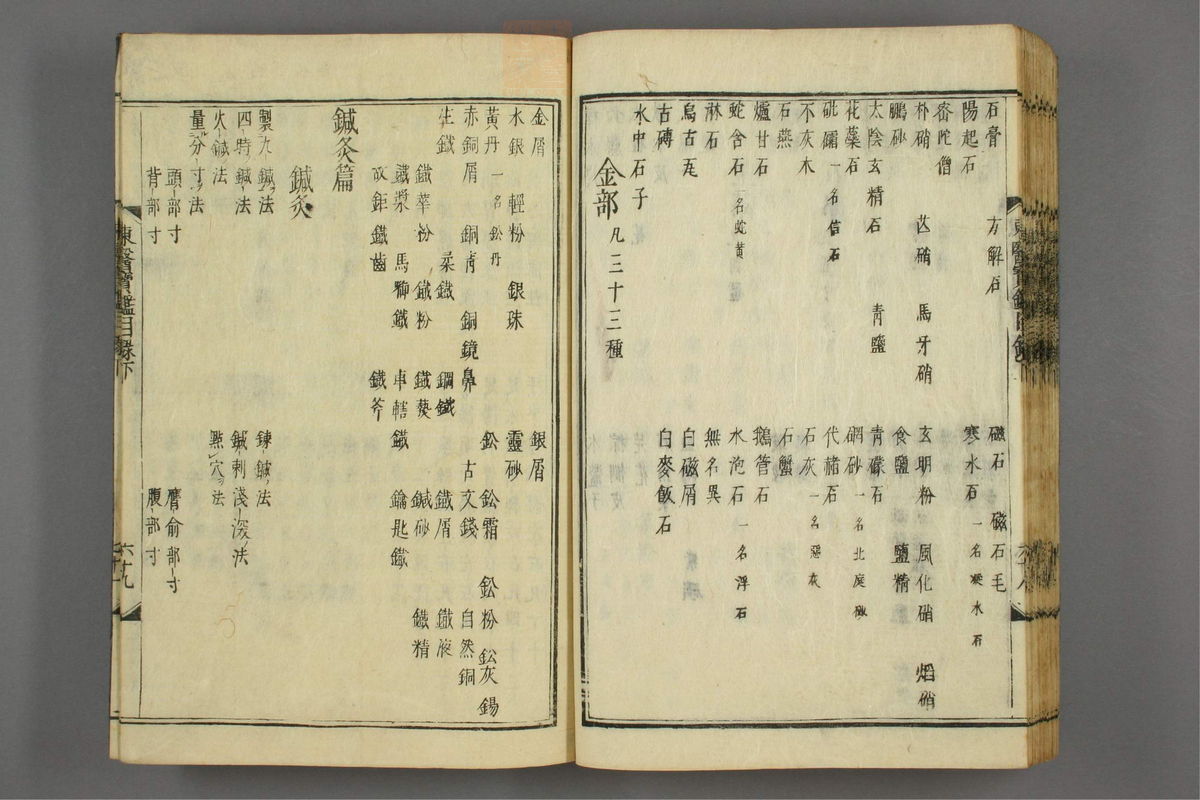 石膏　方解石　磁石　磁石毛
陽起石　寒水石一名凝水石
密陀僧
朴硝　芒硝　馬牙硝　玄明粉　風化硝　焰硝
鵬砂　食鹽　鹽精
太陰玄精石　青鹽　青礞石
花蘂石　硇砂一名北庭砂
砒礵一名信石　代赭石
不灰木　石灰一名惡灰
石燕　石蟹
爐甘石　鵝管石
蛇含石一名蛇黃　水泡石一名浮石
淋石　無名異
烏古瓦　白磁屑
古磚　白麥飯石
水中石子
金部凡三十三種
金屑　銀屑
水銀　輕粉　銀珠　靈砂
黃丹一名鈆丹　鈆　鈆霜　鈆粉　鈆灰　錫
赤銅屑　銅青　銅鏡鼻　古文錢　自然銅
生鐵　柔鐵　鋼鐵　鐵屑　鐵液
鐵華粉　鐵粉　鐵蘂　鍼砂　鐵精
鐵漿　馬啣鐵　車轄鐵　鑰匙鐵
故鉅鐵齒　鐵斧
鍼灸篇
鍼灸
製九鍼法　鍊鍼法
四時鍼法　鍼刺淺深法
火鍼法　點穴法
量分寸法
頭部寸　膺俞部寸
背部寸　腹部寸
東醫寶鑑目錄下